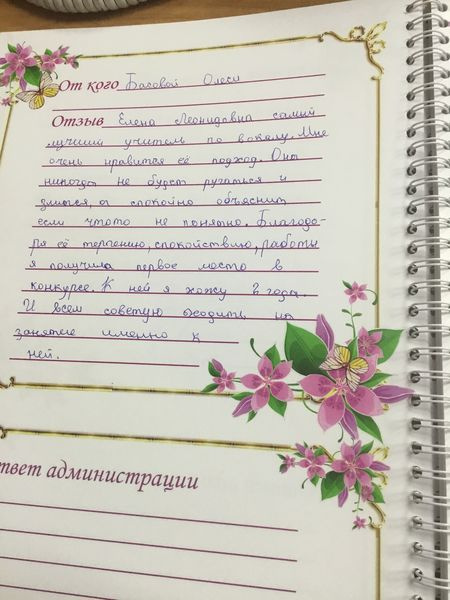 От кого Басовой Олеси
Отзыв Елена Леонидовна самый
лучший учитель по вокалу. Мне
очень нравится её подход. Она
никогда не будет ругаться и
злится, а спокойно объяснит
если чтото не понятно. Благодо-
ря её терпению, спокойствию, работы
я получила первое место в
конкурсе. К ней я хожу 2 года.
И всем советую сходить на
занятие именно к
ней.
твет администрации